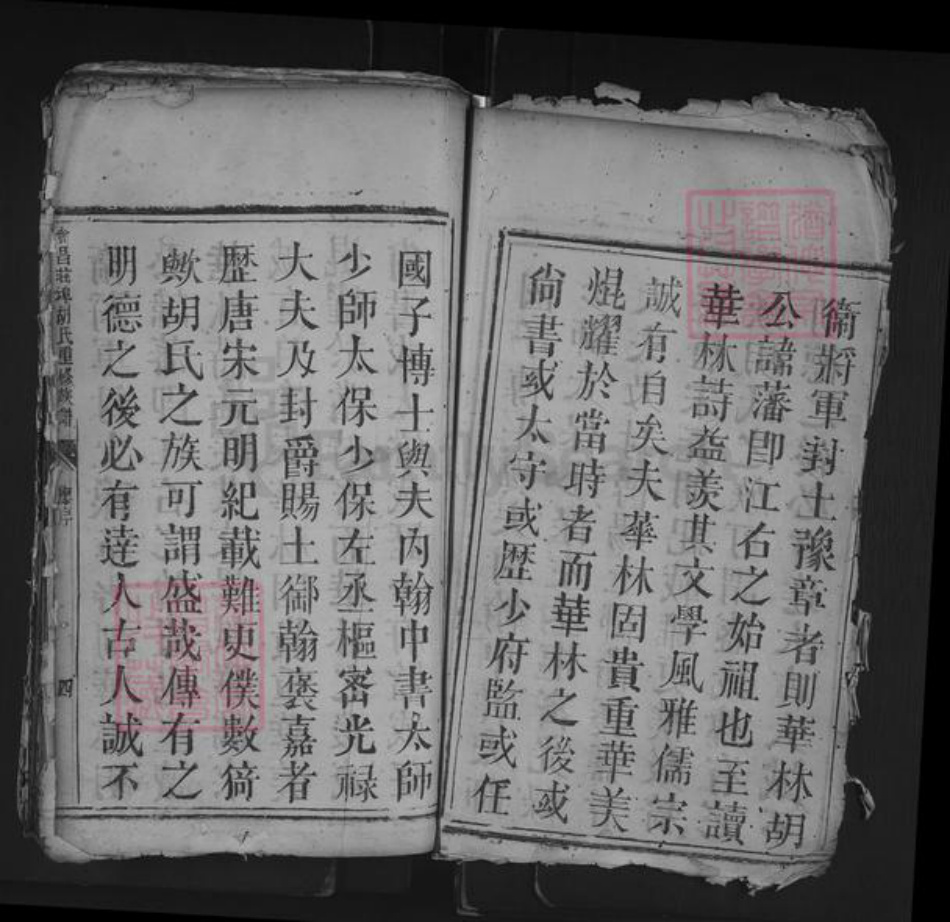 衛將軍封土豫章者則華林胡
公諱藩即江右之始祖也至讀
華林詩益羨其文學風雅儒宗
誠有自矣夫華林固貴重華美
焜耀於當時者而華林之後或
尚書或太守或歷少府監或任
國子博士與夫內翰中書太師
少師太保少保左丞樞密光祿
大夫及封爵賜土御翰褒嘉者
歷唐宋元明紀載難更僕數猗
歟胡氏之族可謂盛哉傳有之
明德之後必有達人古人誠不
昌莊埠胡氏重修族譜
四